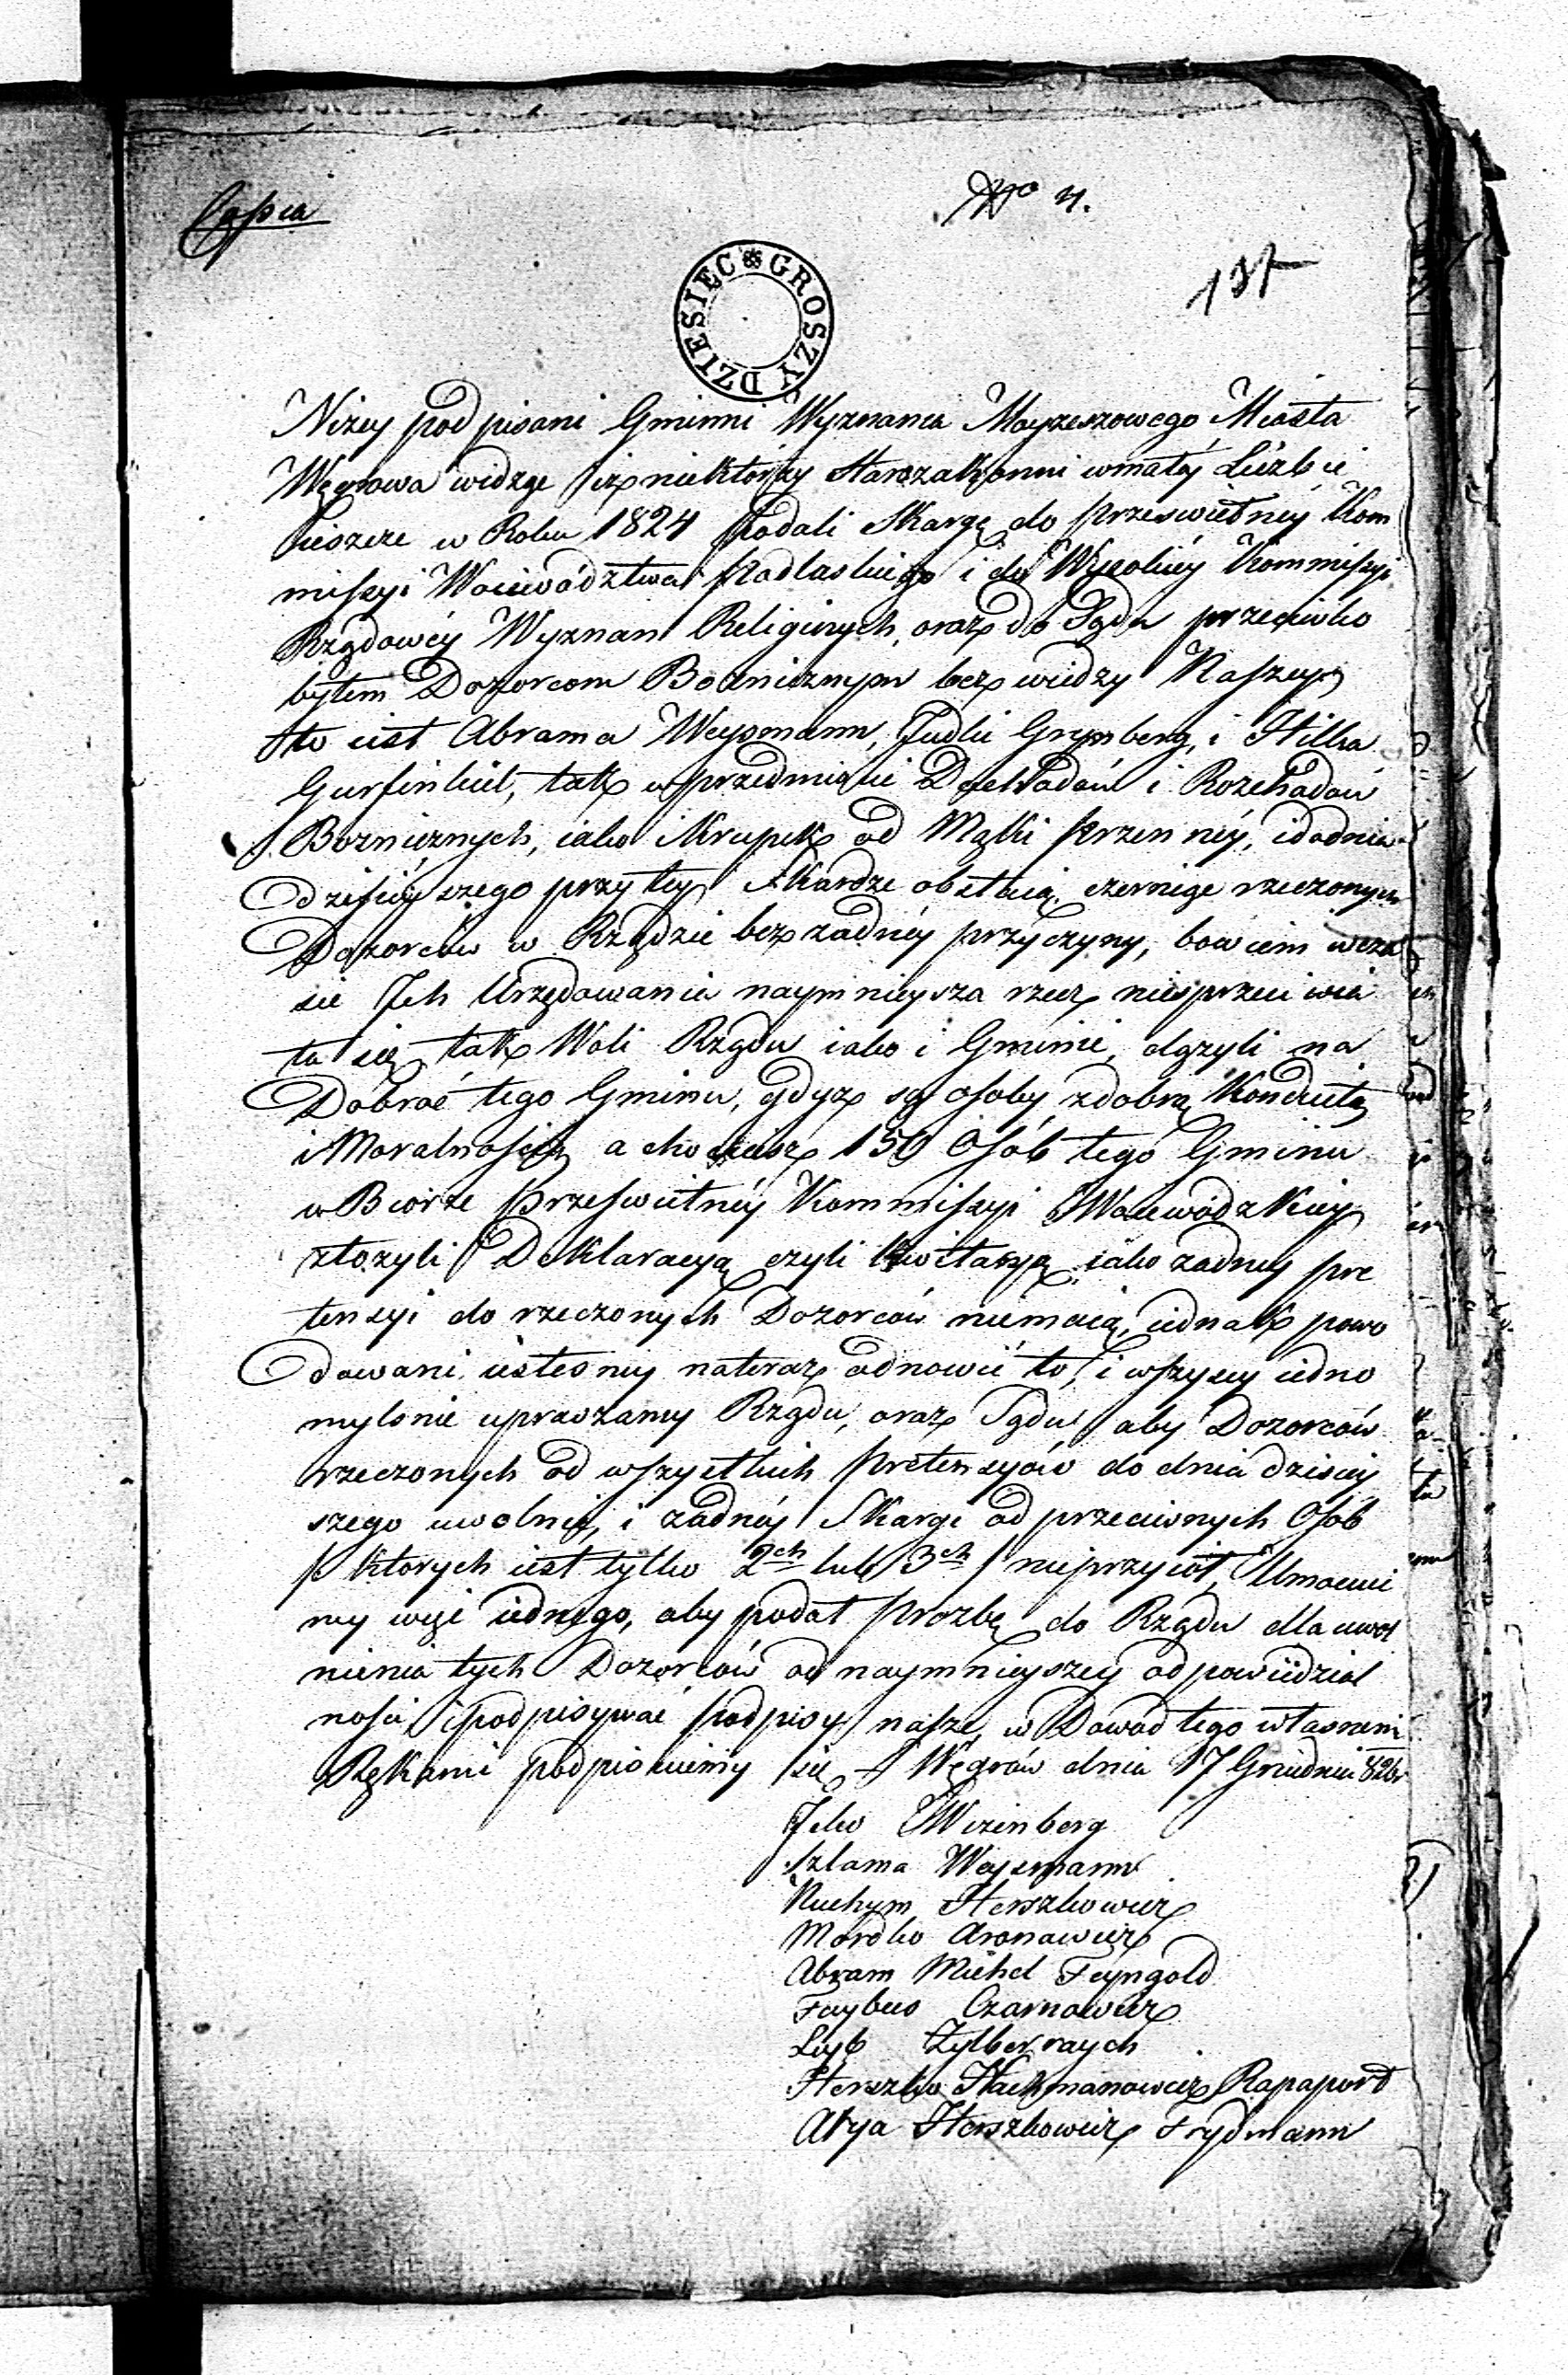 Copia
No 4.
137
DZIESIĘC GROSZY
Niżey podpisani Gminni Wyznania Moyzeszowego Miasta
Węgrowa widząc iż niektórzy Starozakonni w małéy Liczbie
ieszcze w Roku 1824 podali Skargę do Przeswietnéy Kom
missyi Woiewództwa Podlaskiego i do Wysokiéy Kommissyi
Rządowéy Wyznań Religinych, oraz do Sądu przeciwko
byłem Dozorcom Bożnicznym bez wiedzy Naszey
to iest Abrama Weysmann, Judki Grynberg, i Hilka
Gurfinkiel, tak w przedmiocie Dochodów i Rozchodów
Bożnicznych, iako i Krupek od Mąki Przennéy, i do dnia
dzisieyszego przy tey Skardze obstaią czerniąc rzeczonych
Dozorców w Rządzie bez zadnéy przyczyny, bowiem w cza
sie Ich Urzędowania naymnieysza rzecz niesprzeciwia
ła się tak Woli Rządu iako i Gminie, dązyli na
Dobroć tego Gminu, gdyż są osoby z dobrą Konduitą
i Moralnością a chociasz 150 Osób tego Gminu
w Biórze Przeswietnéy Kommissyi Woiewódzkiey
złozyli Deklaracyą czyli Kwitacyą iako zadney pre
tensyi do rzeczonych Dozorców niemaią, iednak powo
dowani iestesmy nateraz odnowić to, i wszyscy iedno
myslnie upraszamy Rządu, oraz Sądu aby Dozorców
rzeczonych od wszystkich Pretensyów do dnia dzisiey
szego uwolnić, i zadnéy Skargi od przeciwnych Osób
/ Ktorych iest tylko 2ch lub 3ch / nieprzyiął, Umocni
my więc iednego, aby podał Prozbę do Rządu dla uwol
nienia tych Dozorców od naymnieyszey odpowiedzial
nosci i podpisywać podpisy nasze, w Dowód tego własnemi
Rękami podpisuiemy się / Węgrów dnia 17 Grudnia 826r
Icko Wizenberg
Szlama Weysmann
Nuchym Herszkowicz
Mordko Aronowicz
Abram Michel Feyngold
Faybus Czarnowicz
Leyb Zylberraych
Herszko Nachmanowicz Rapaport
Arya Herszkowicz Frydmann